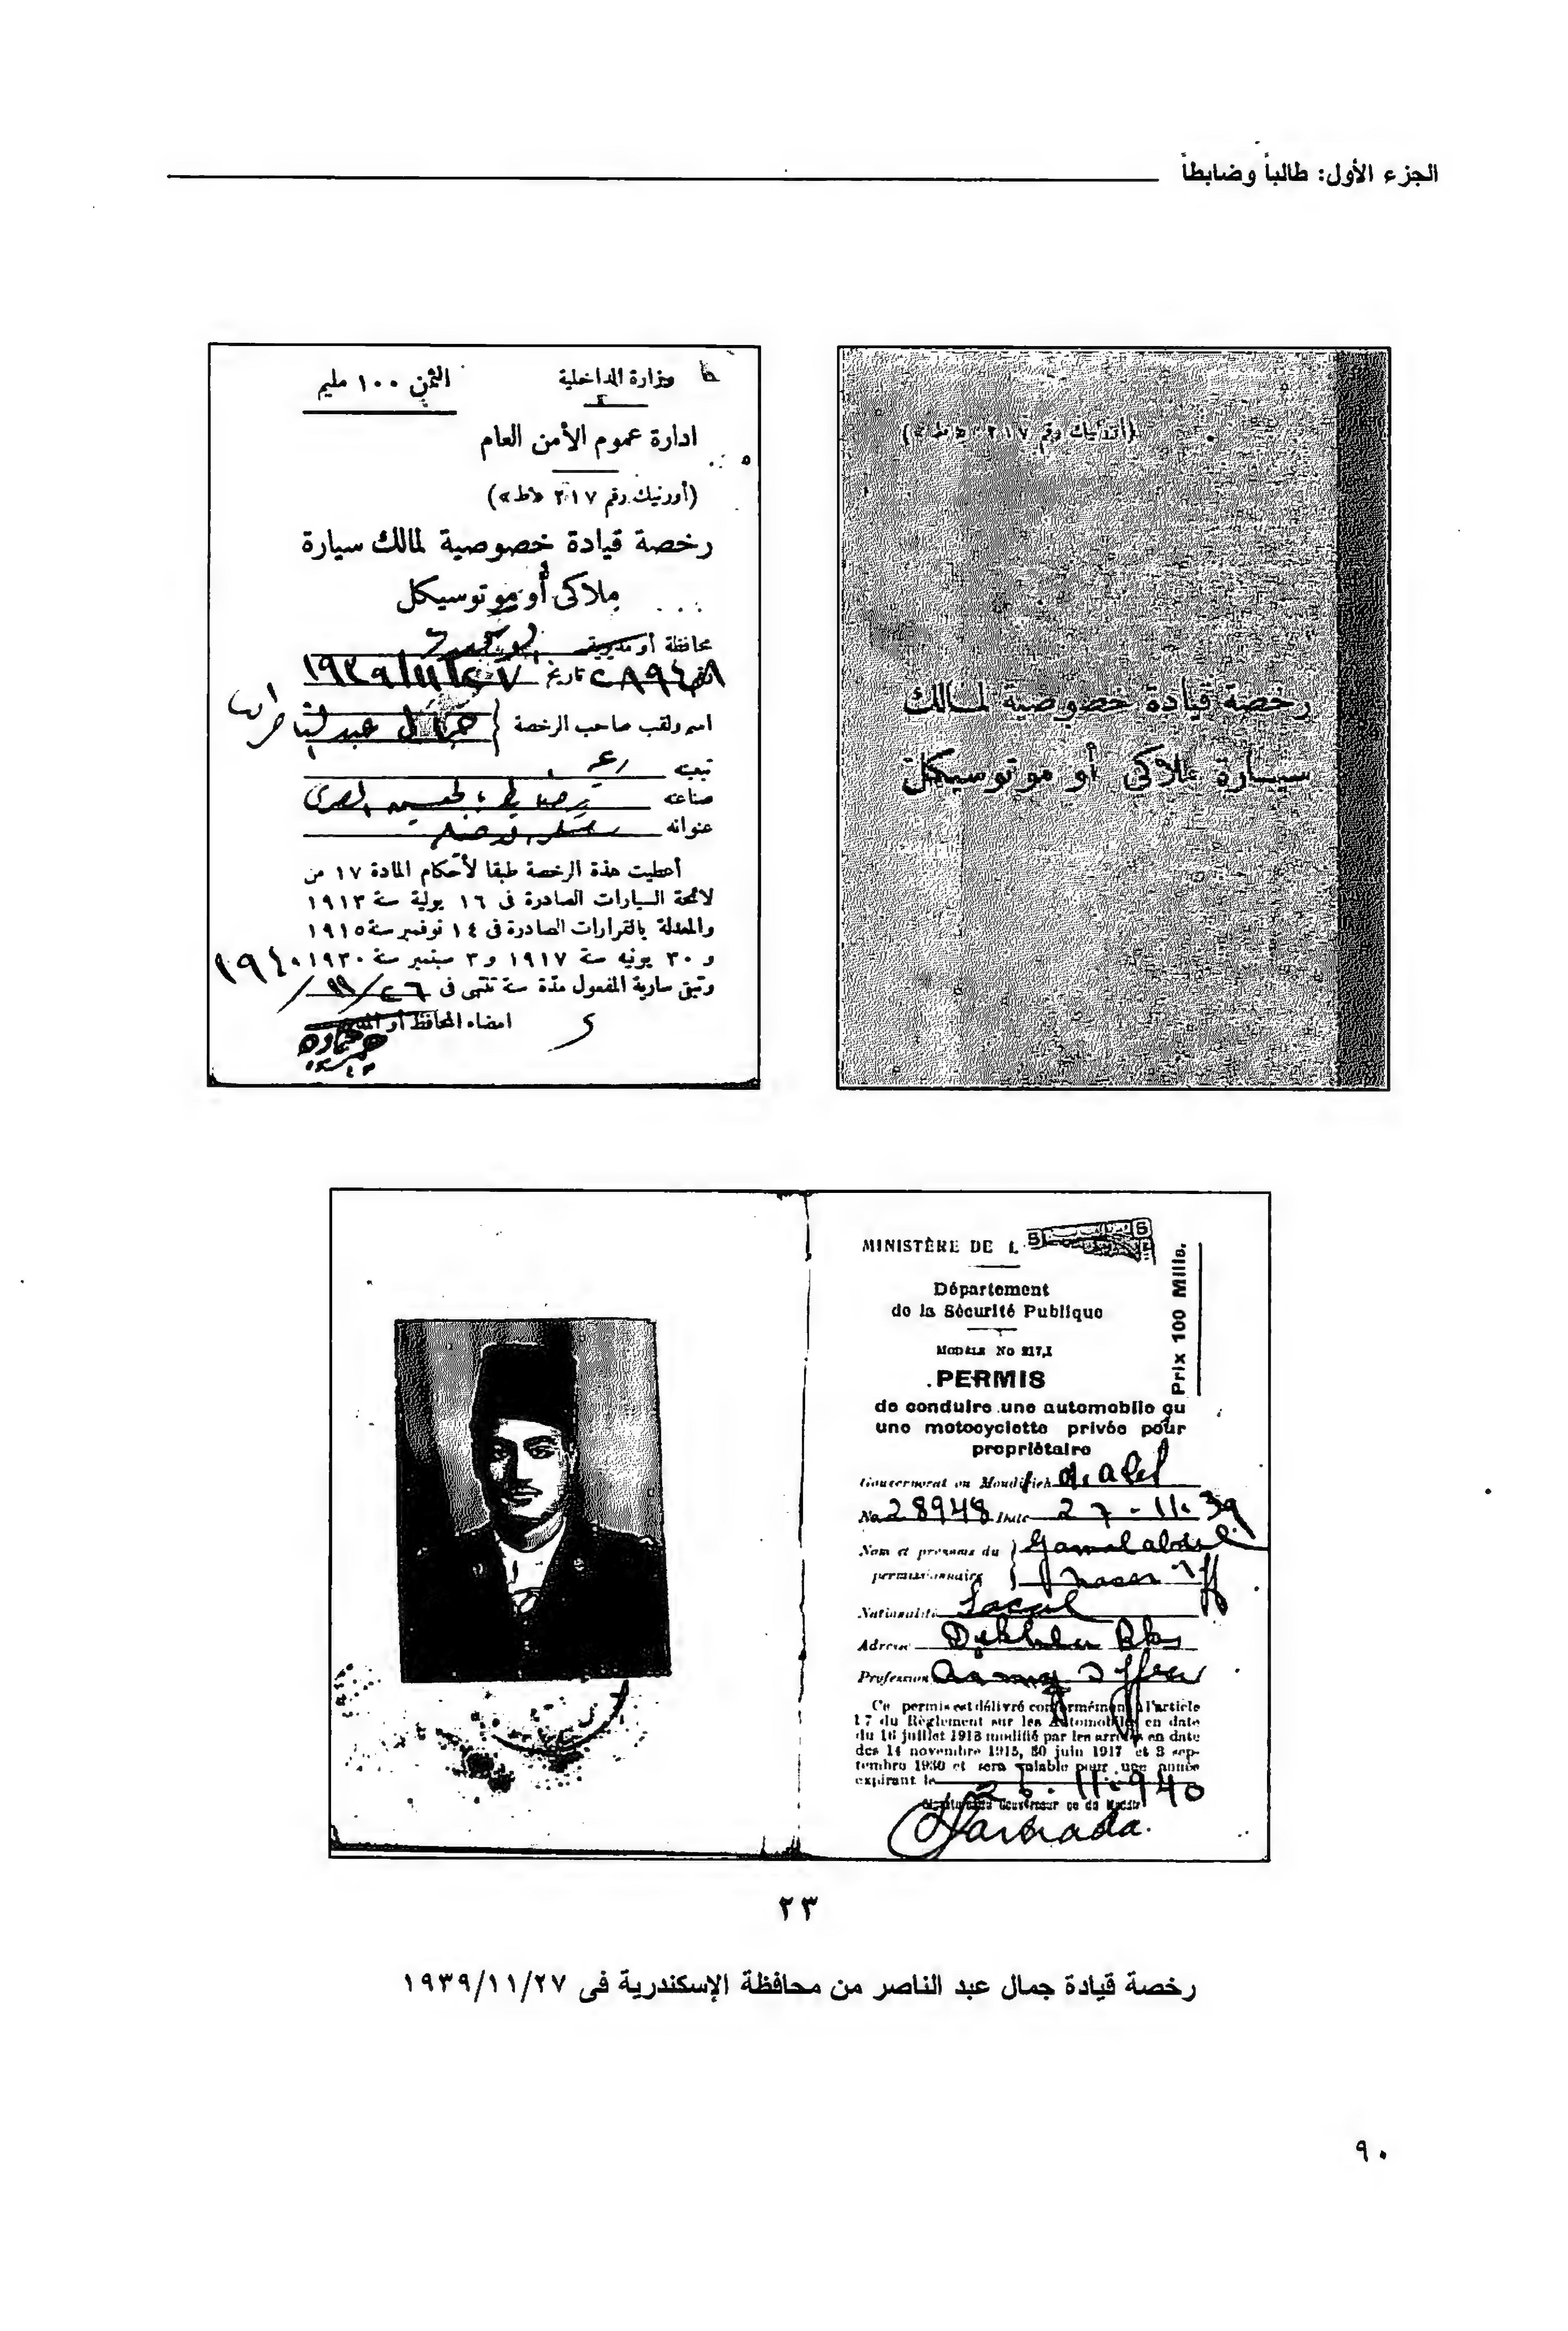 الجزء الأول: طالباً وضابطاً
(أورنيك رقم ٢١٧ «ط»)
رخصة قيادة خصوصية لمالك
سيارة ملاكى أو موتوسيكل
وزارة الداخلية
الثمن ١٠٠ مليم
ادارة عموم الأمن العام
(أورنيك رقم ٢١٧ «ط»)
رخصة قيادة خصوصية لمالك سيارة
ملاكى أو موتوسيكل
محافظة أو مديرية
٢٨٩٤٨ تاريخ ٢٧/١١/١٩٣٩
اسم ولقب صاحب الرخصة جمال عبد الناصر
تبعيته
صناعته ضابط بالجيش المصرى
عنوانه
أعطيت هذة الرخصة طبقا لأحكام المادة ١٧ من
لائحة السيارات الصادرة فى ١٦ يولية سنة ١٩١٣
والمعدلة بالقرارات الصادرة فى ١٤ نوفمبر سنة ١٩١٥
و ٣٠ يونيه سنة ١٩١٧ و ٣ سبتمبر سنة ١٩٣٠
وتبقى سارية المفعول مدة سنة تنتهى فى ٢٦/١١/١٩٤٠
امضاء المحافظ أو
MINISTÈRE DE L
Prix 100 Mills.
Département
de la Sécurité Publique
MODÈLE No 217,I
PERMIS
de conduire une automobile ou
une motocyclette privée pour
propriétaire
Gouvernorat ou Moudirieh
No 28948 Date 27-11-39
Nom et prénoms du Gamal abdel
permissionnaire nasser eff
Nationalité Local
Adresse Dekhela Bks
Profession army officer
Ce permis est délivré conformément à l'article
17 du Règlement sur les Automobiles en date
du 16 juillet 1913 modifié par les arrêtés en date
des 14 novembre 1915, 30 juin 1917 et 3 sep-
tembre 1930 et sera valable pour une année
expirant le 26.11.940
٢٣
رخصة قيادة جمال عبد الناصر من محافظة الإسكندرية فى ٢٧/١١/١٩٣٩
٩٠